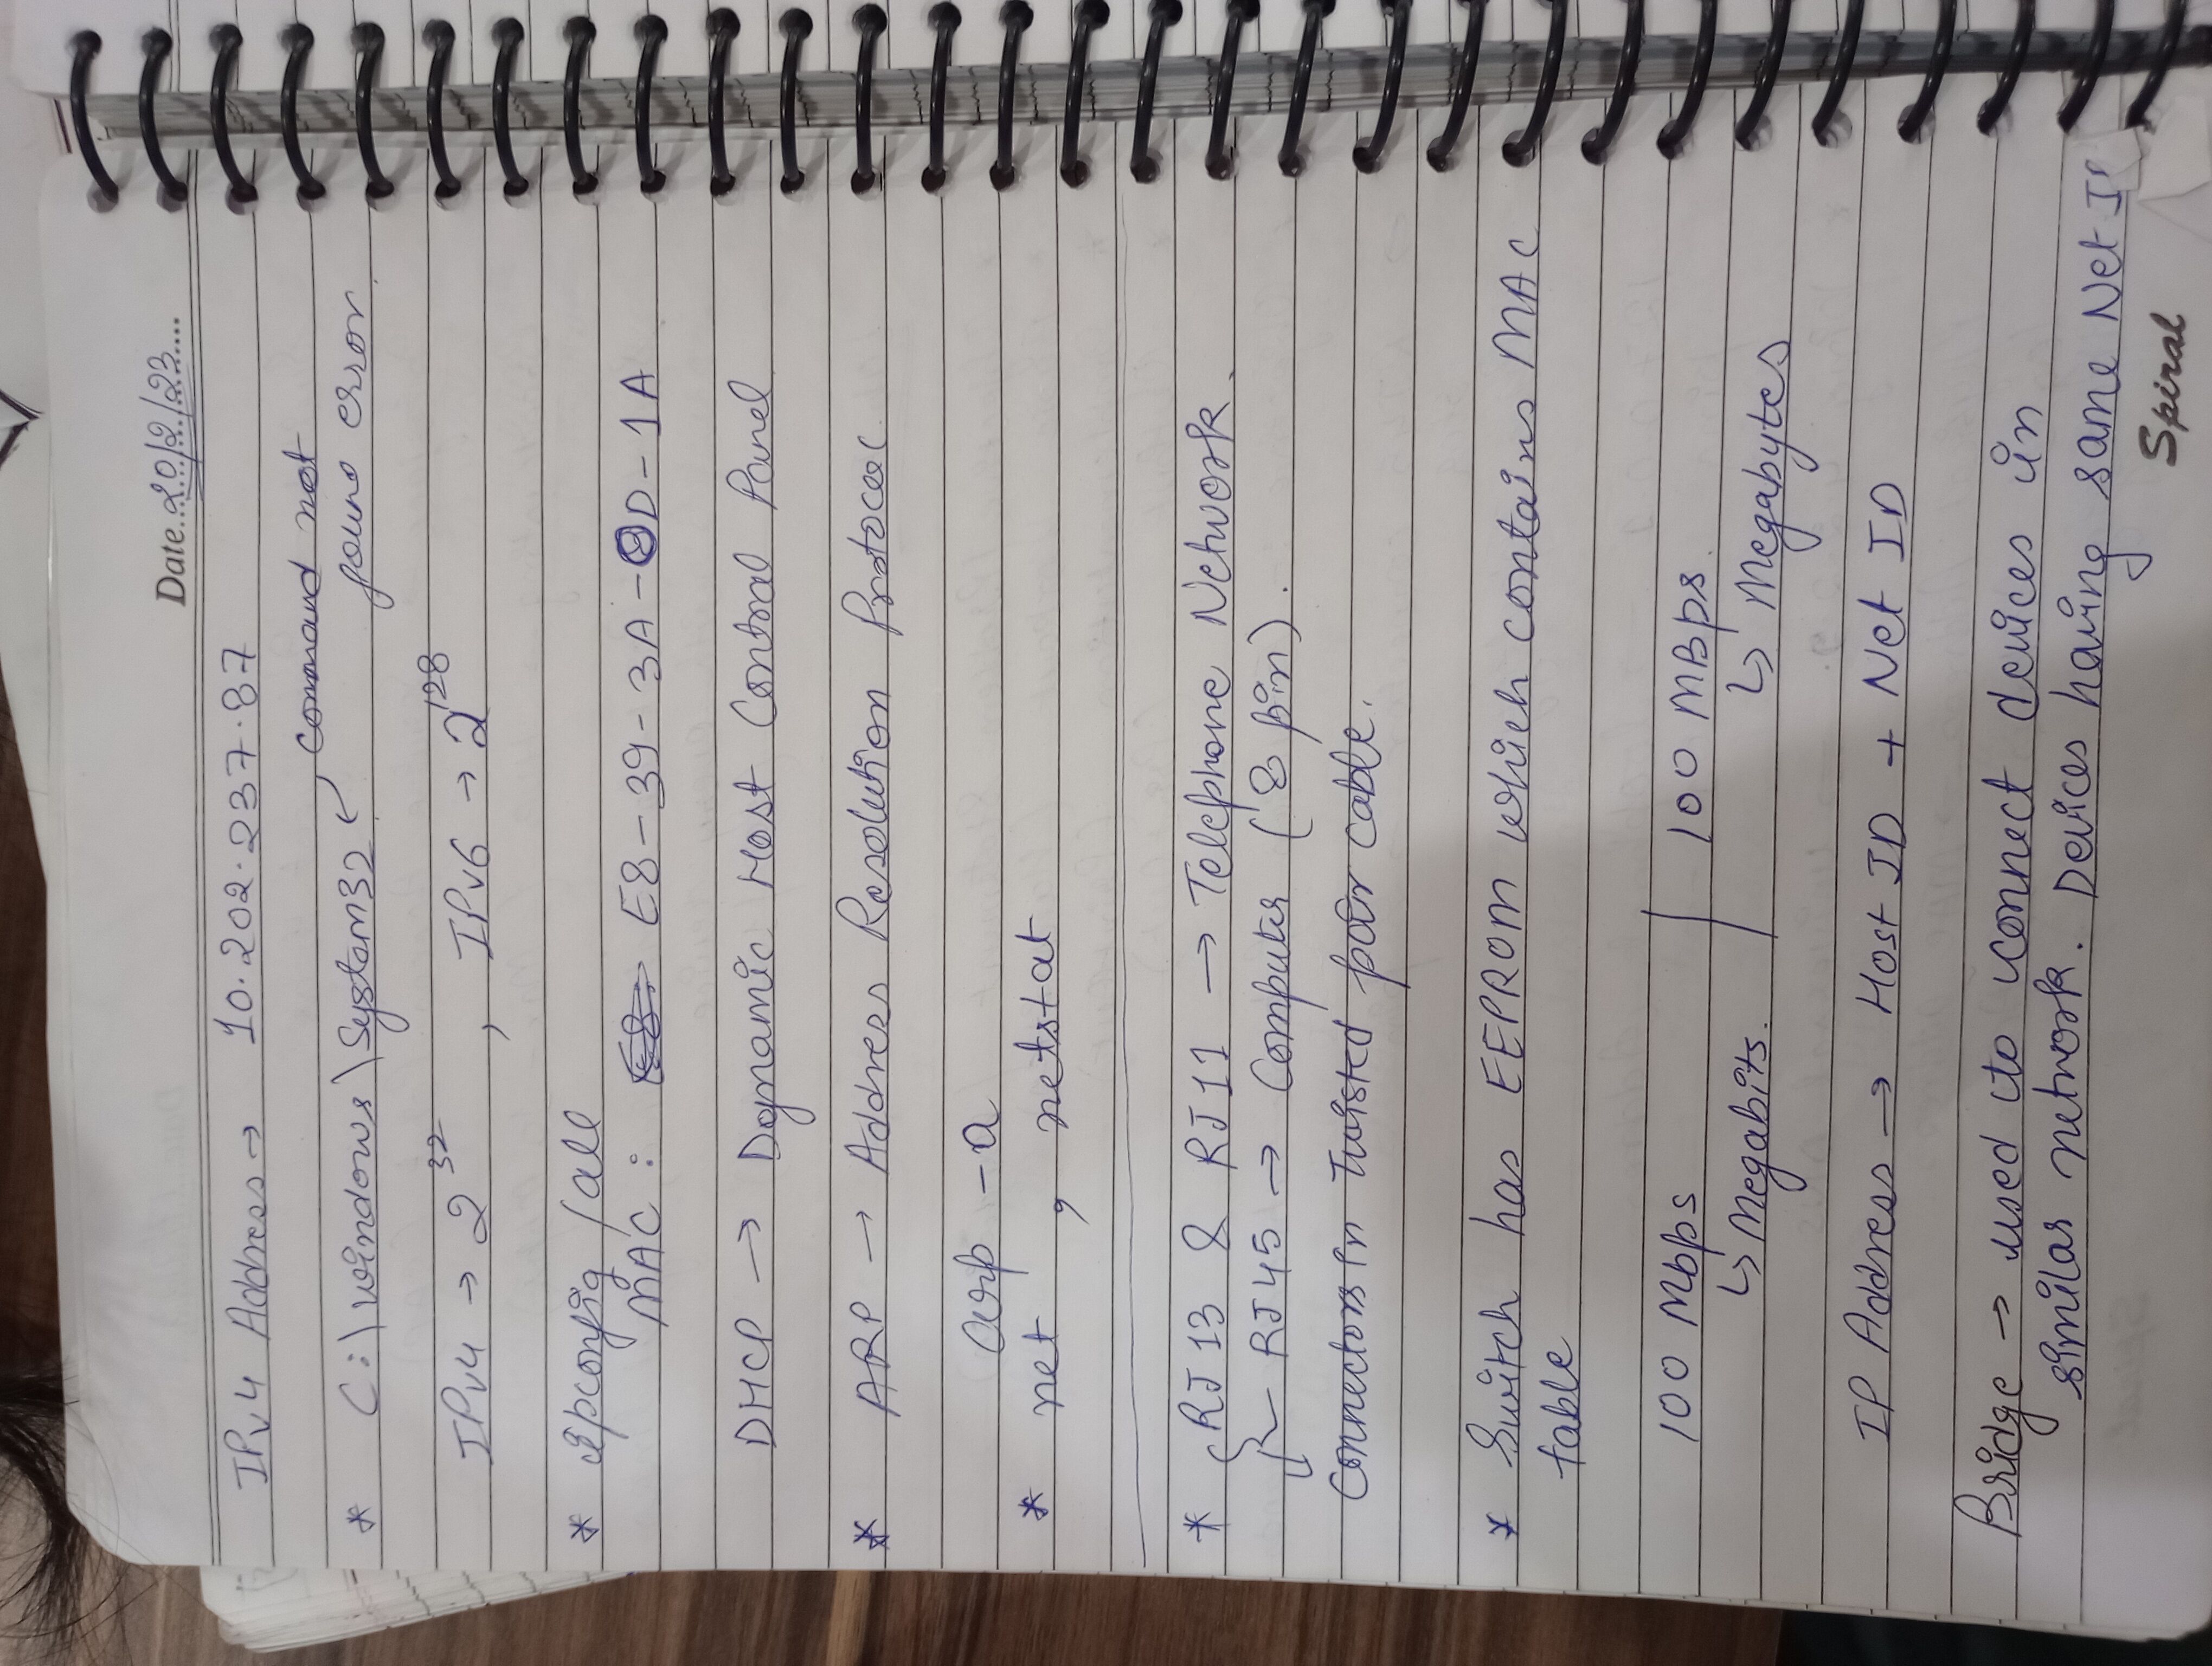 Date 20/2/23
IPv4 Address → 10.202.237.87
command not
* C:\windows\System32 found error.
IPv4 → 2^32 , IPv6 → 2^128
* ipconfig /all
MAC : E8-39-3A-9D-1A
DHCP → Dynamic Host Control Panel
* ARP → Address Resolution Protocol
arp -a
* net , netstat
* RJ13 & RJ11 → Telephone Network.
RJ45 → Computer (8 pin).
Connectors in Twisted pair cable.
* Switch has EEPROM which contains MAC
table
100 Mbps | 100 MBps.
↳ Megabits. | ↳ Megabytes
IP Address → Host ID + Net ID
Bridge → used to connect devices in
similar network. Devices having same Net
Spiral